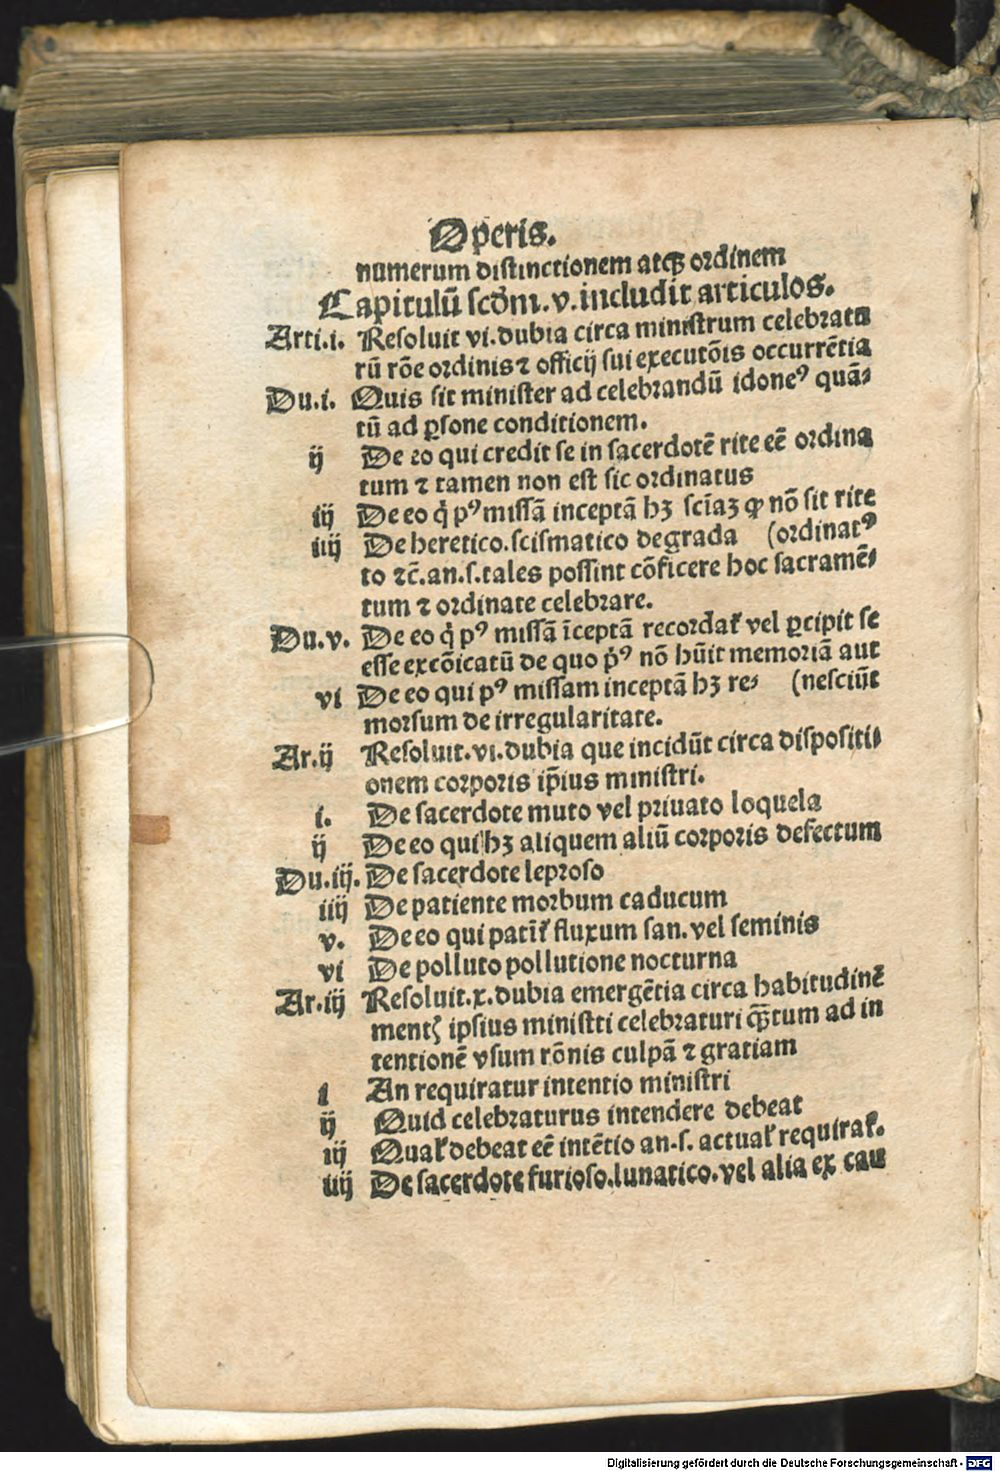 Operis.
numerum distinctionem atqꝫ ordinem
Capitulū scd̄m. v. includit articulos.
Arti.i. Resoluit vi. dubia circa ministrum celebratu
rū rōe ordinis ⁊ officij sui executōis occurrētia
Du.i. Quis sit minister ad celebrandū idoneꝰ quā⸗
tū ad ꝑsone conditionem.
ij De eo qui credit se in sacerdotē rite eē ordina
tum ⁊ tamen non est sic ordinatus
iij De eo q̇ pꝰ missā inceptā hꝫ sciāꝫ ꝙ nō sit rite
iiij De heretico.scismatico degrada (ordinatꝰ
to ⁊c̄.an.s.tales possint cōficere hoc sacramē⸗
tum ⁊ ordinate celebrare.
Du.v. De eo q̇ pꝰ missā īceptā recordat᷑ vel ꝑcipit se
esse excōicatū de quo ṗꝰ nō hūit memoriā aut
vi De eo qui pꝰ missam inceptā hꝫ re⸗ (nesciūt
morsum de irregularitate.
Ar.ij Resoluit.vi.dubia que incidūt circa dispositi⸗
onem corporis ip̄ius ministri.
i. De sacerdote muto vel priuato loquela
ij De eo qui hꝫ aliquem aliū corporis defectum
Du.iij. De sacerdote leproso
iiij De patiente morbum caducum
v. De eo qui patit᷑ fluxum san. vel seminis
vi De polluto pollutione nocturna
Ar.iij Resoluit.x.dubia emergētia circa habitudinē
mentꝭ ipsius ministri celebraturi qꝫ̄tum ad in
tentionē vsum rōnis culpā ⁊ gratiam
i An requiratur intentio ministri
ij Quid celebraturus intendere debeat
iij Qual᷑ debeat eē intētio an.s. actual᷑ requirat᷑.
iiij De sacerdote furioso.lunatico.vel alia ex cau
Digitalisierung gefördert durch die Deutsche Forschungsgemeinschaft - DFG